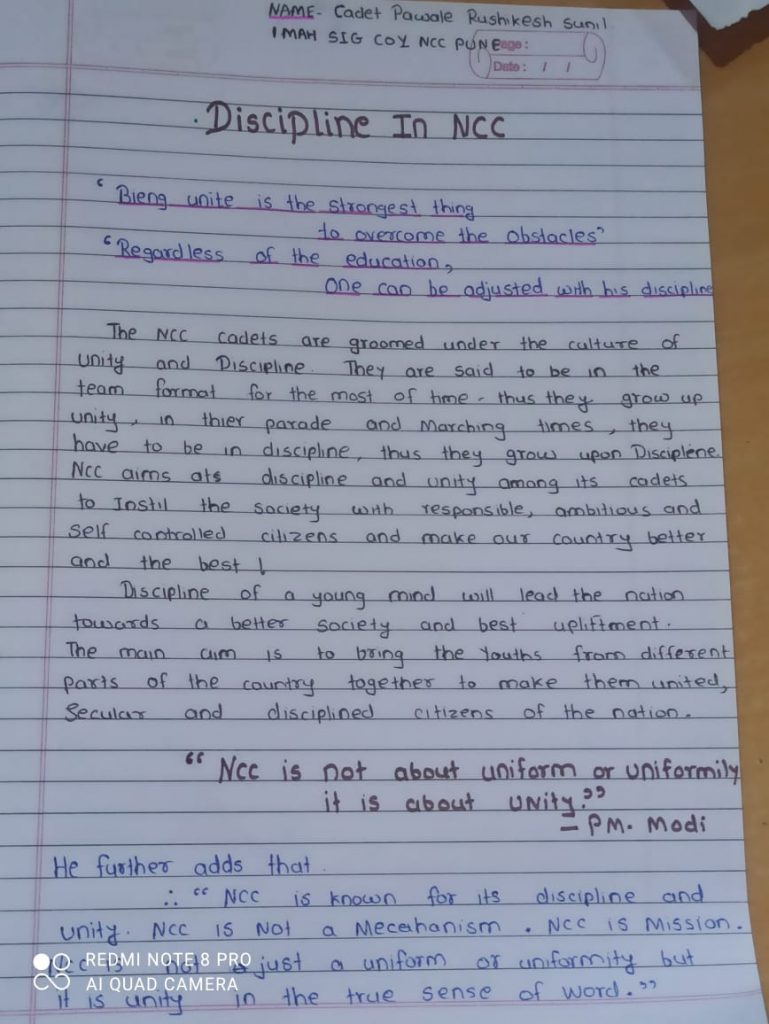 NAME- Cadet Pawale Rushikesh Sunil
1 MAH SIG COY NCC PUNE
Page:
Date: / /
Discipline In NCC
‘ Bieng unite is the strongest thing
to overcome the obstacles”
“Regardless of the education,
one can be adjusted with his discipline
The NCC cadets are groomed under the culture of
unity and Discipline. They are said to be in the
team format for the most of time - thus they grow up
unity, in thier parade and Marching times, they
have to be in discipline, thus they grow upon Disciplene
NCC aims ats discipline and unity among its cadets
to Instil the society with responsible, ambitious and
self controlled citizens and make our country better
and the best !
Discipline of a young mind will lead the nation
towards a better society and best upliftment.
The main aim is to bring the Youths from different
parts of the country together to make them united,
Secular and disciplined citizens of the nation.
“ NCC is not about uniform or uniformily
it is about UNity.”
= PM. Modi
He further adds that.
∴ “ NCC is known for its discipline and
unity. NCC is Not a Mecahanism. NCC is Mission.
not just a uniform or uniformity but
it is unity in the true sense of word.”
REDMI NOTE 8 PRO
AI QUAD CAMERA